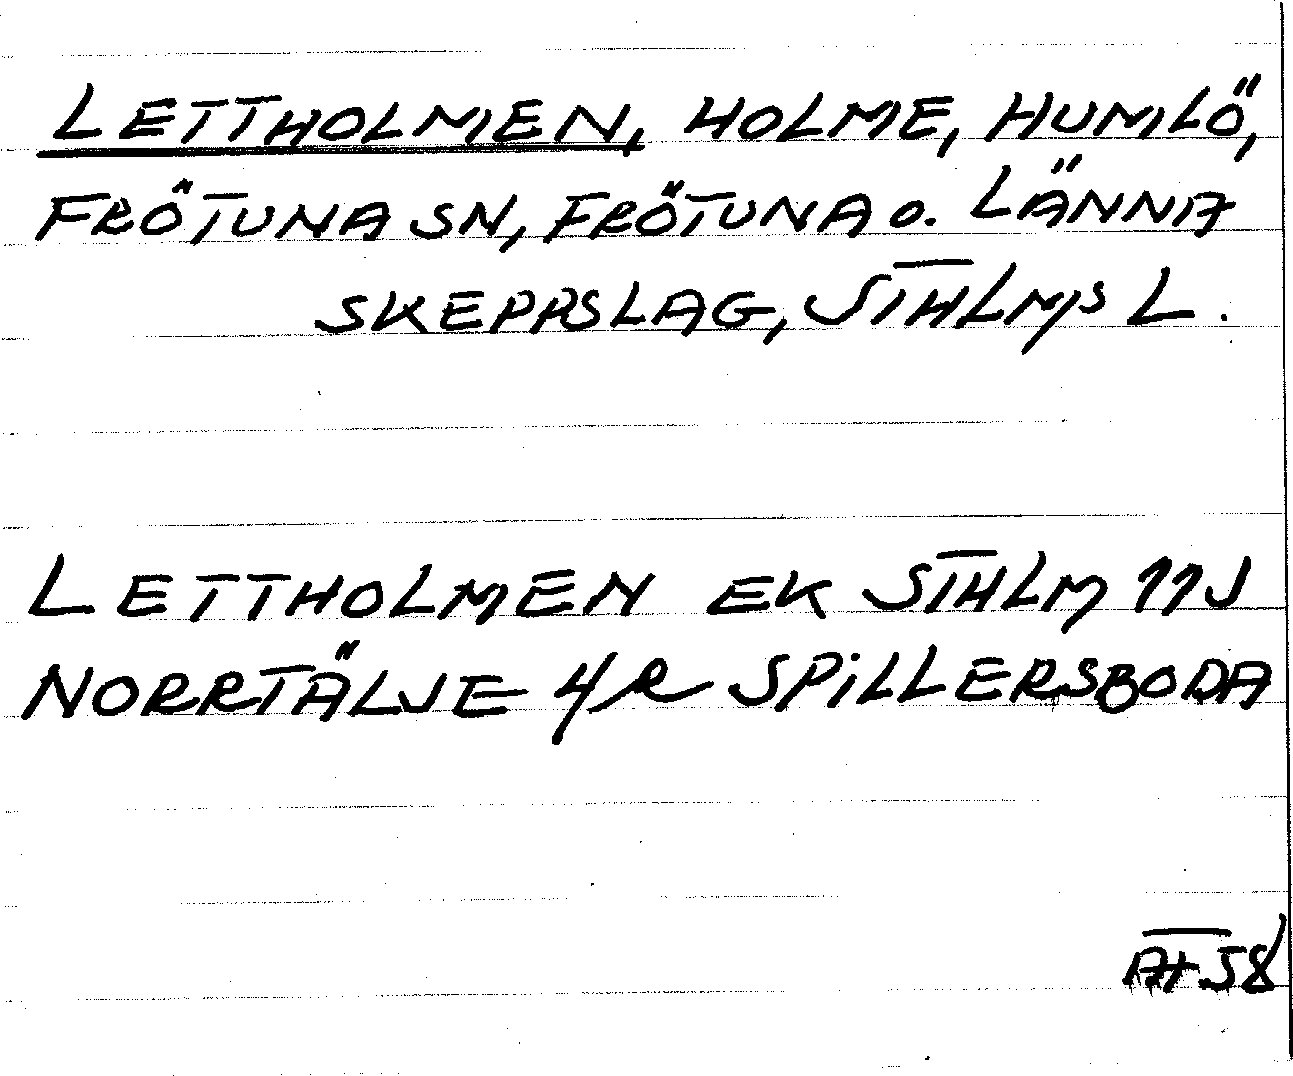 LETTHOLMEN, HOLME, HUMLÖ,
FRÖTUNA SN, FRÖTUNA o. LÄNNA
SKEPPSLAG, STHLMS L.
LETTHOLMEN EK STHLM 11J
NORRTÄLJE 4/R SPILLERSBODA
58